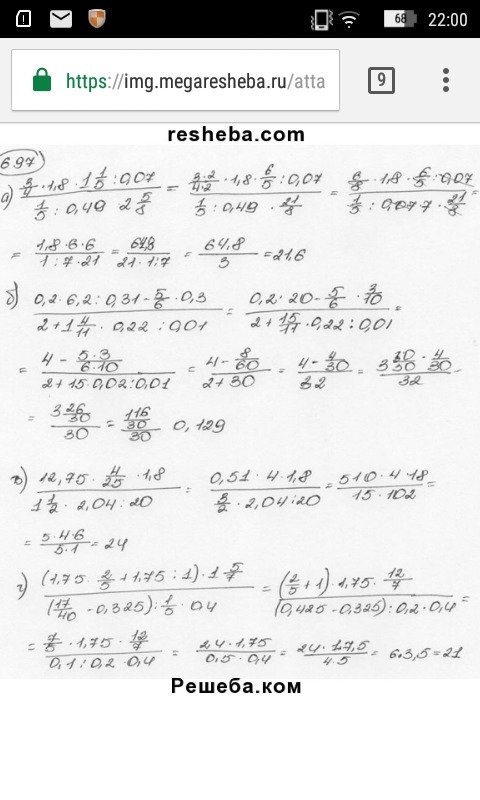 68 22:00
https://img.megaresheba.ru/atta 9
resheba.com
697)
а) (3/4 · 1,8 · 1 1/5 : 0,07) / (1/5 : 0,49 2 5/8) = (3·2/4·2 · 1,8 · 6/5 : 0,07) / (1/5 : 0,49 · 21/8) = (6/8 · 1,8 · 6/5 : 0,07) / (1/5 : 0,077 · 21/8) =
= (1,8·6·6) / (1:7·21) = 64,8 / (21·1:7) = 64,8 / 3 = 21,6
б) (0,2·6,2 : 0,31 - 5/6 · 0,3) / (2+1 4/11 · 0,22 : 0,01) = (0,2·20 - 5/6 · 3/10) / (2 + 15/11 · 0,22 : 0,01) =
= (4 - 5·3/6·10) / (2+15·0,02:0,01) = (4 - 8/60) / (2+30) = (4 - 4/30) / 32 = (3 30/30 - 4/30) / 32
= (3 26/30) / 30 = (116/30) / 30 0,129
в) (12,75 · 4/25 · 1,8) / (1 1/2 · 2,04 : 20) = (0,51 · 4 · 1,8) / (3/2 · 2,04 : 20) = (510 · 4 · 18) / (15 · 102) =
= (5·4·6) / (5·1) = 24
г) ((1,75 · 2/5 + 1,75 : 1) · 1 5/7) / ((17/40 - 0,325) : 1/5 · 0,4) = ((2/5 + 1) · 1,75 · 12/7) / ((0,425 - 0,325) : 0,2 · 0,4) =
= (7/5 · 1,75 · 12/7) / (0,1 : 0,2 · 0,4) = (2,4 · 1,75) / (0,5 · 0,4) = (24 · 17,5) / (4·5) = 6·3,5 = 21
Решеба.ком